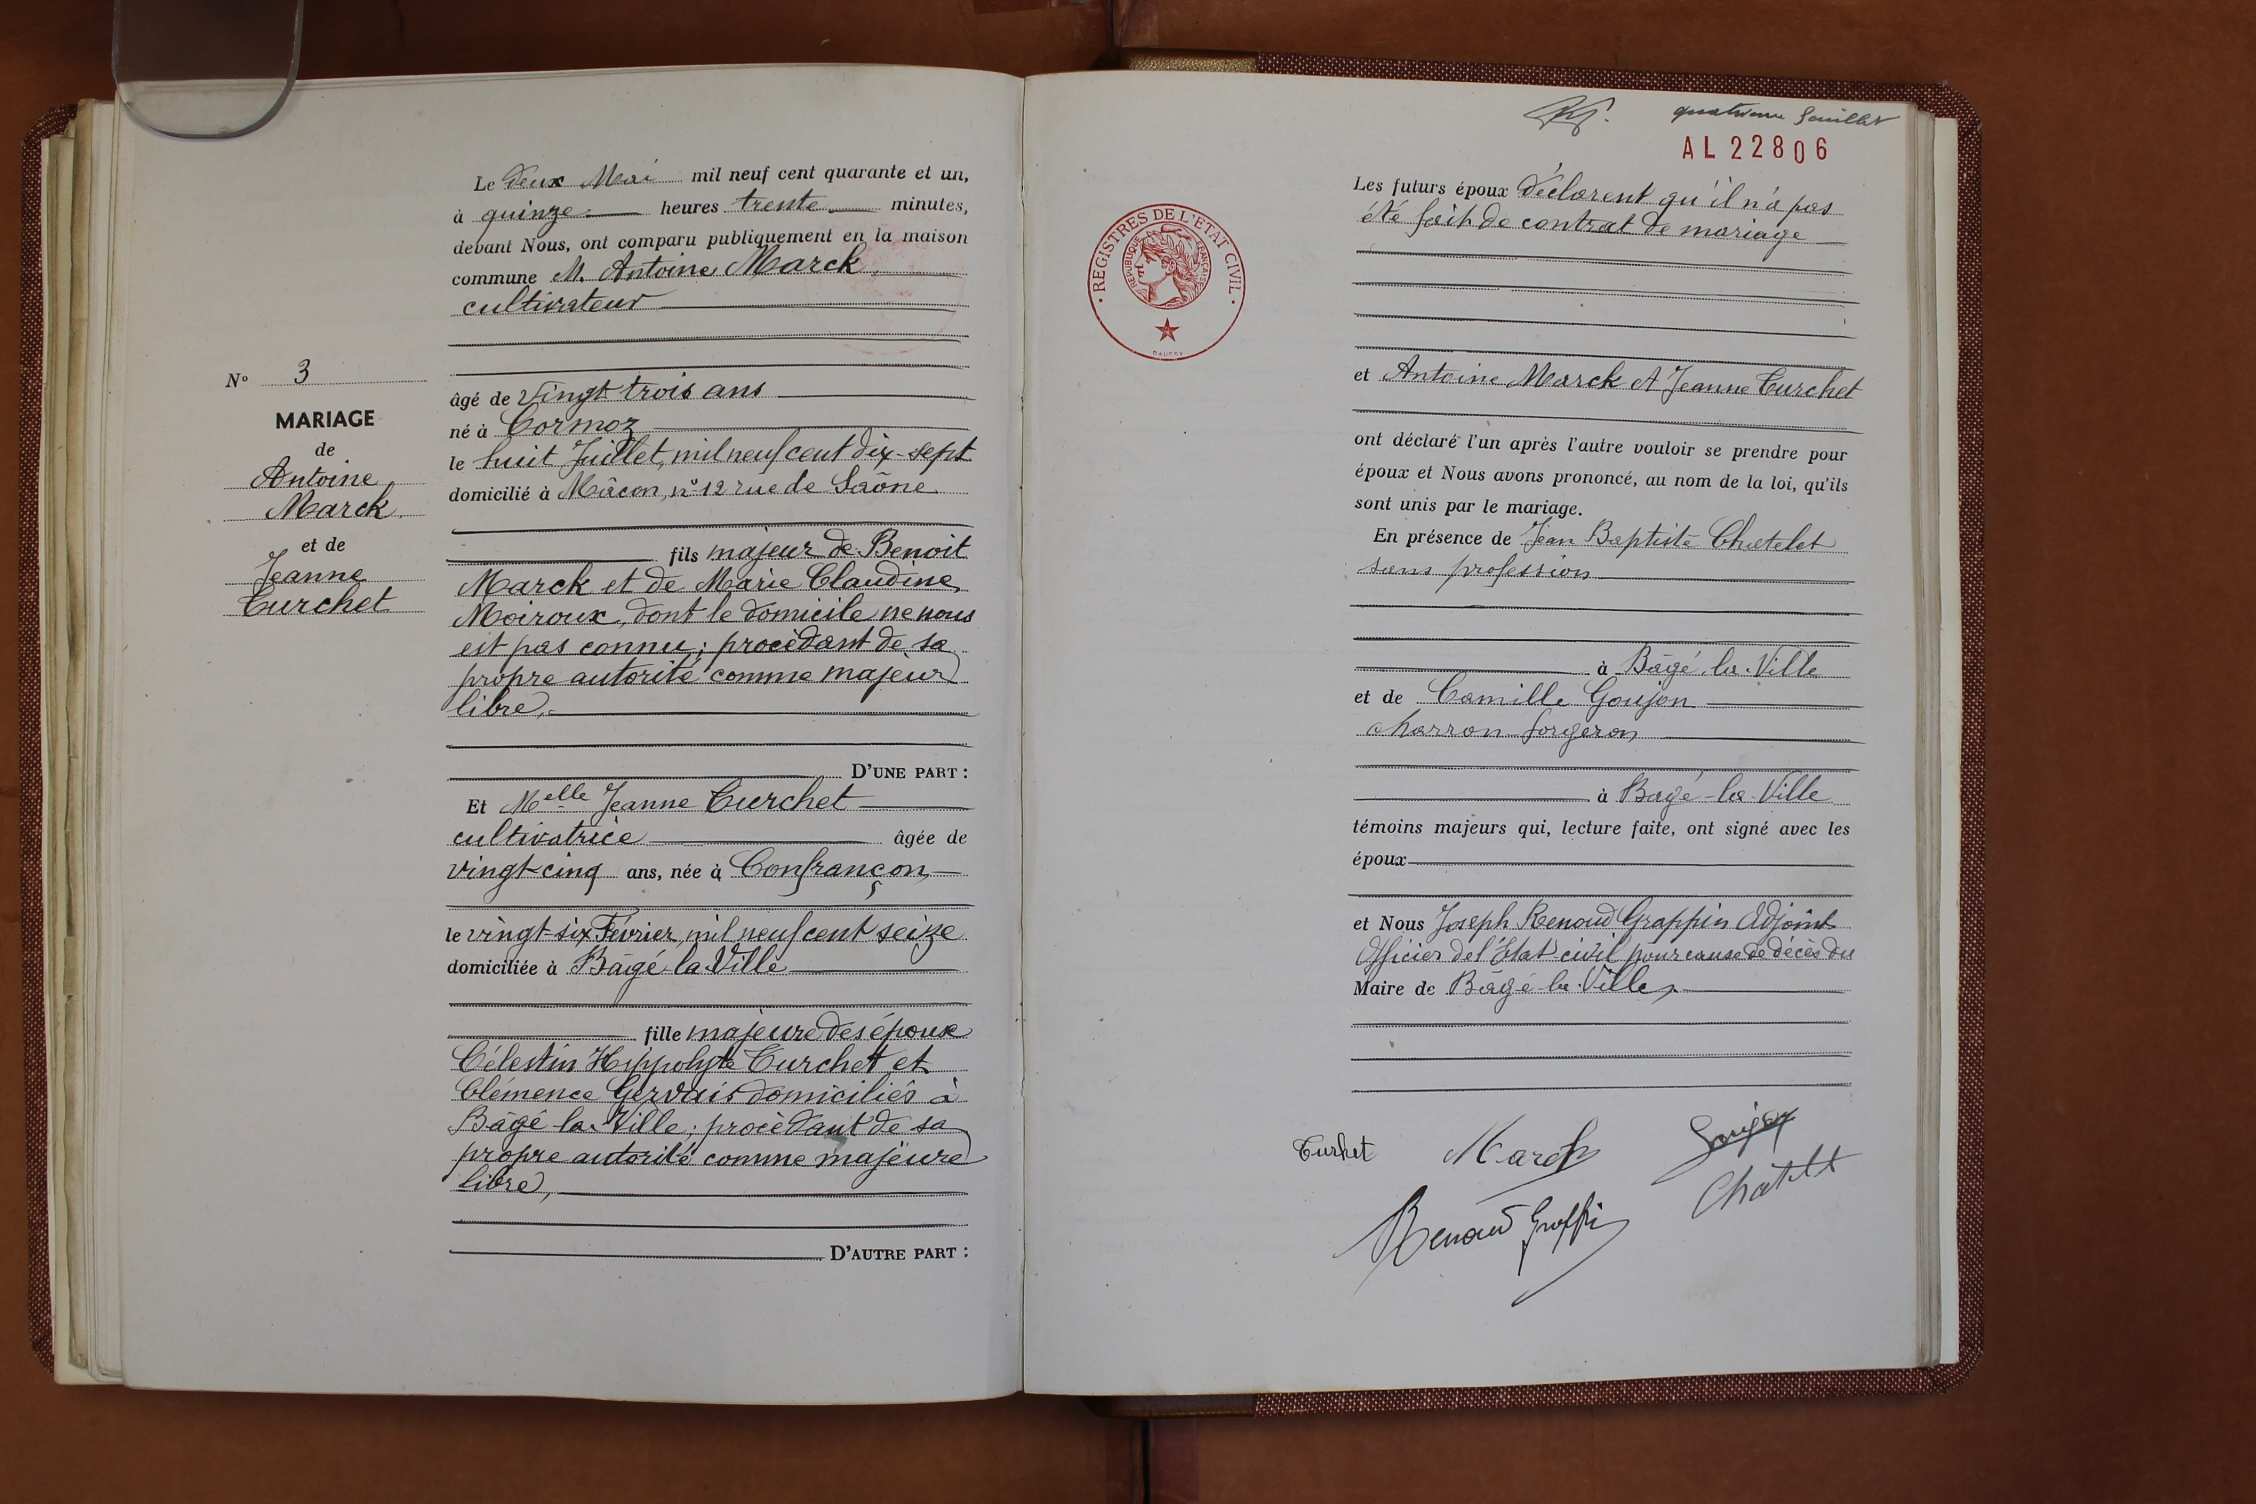 Le deux Mai mil neuf cent quarante et un,
à quinze heures trente minutes,
devant Nous, ont comparu publiquement en la maison
commune M. Antoine Marck,
cultivateur
N° 3
MARIAGE
de
Antoine
Marck
et de
Jeanne
Curchet
âgé de vingt trois ans
né à Cormoz
le huit Juillet, mil neuf cent dix-sept
domicilié à Mâcon, n° 12 rue de Saône
fils majeur de Benoit
Marck et de Marie Claudine
Moiroux, dont le domicile ne nous
est pas connu; procèdant de sa
propre autorité comme majeur
libre,
D'UNE PART :
Et Melle Jeanne Curchet
cultivatrice âgée de
vingt-cinq ans, née à Confrançon
le vingt-six Février, mil neuf cent seize
domiciliée à Bâgé-la-Ville
fille majeure des époux
Célestin Hippolyte Curchet et
Clémence Gervais domiciliés à
Bâgé-la-Ville; procèdant de sa
propre autorité comme majeure
libre,
D'AUTRE PART :
quatrieme feuillet
AL 22806
REGISTRES DE L'ETAT CIVIL
REPUBLIQUE FRANÇAISE
Les futurs époux déclarent qu'il n'a pas
été fait de contrat de mariage
et Antoine Marck et Jeanne Curchet
ont déclaré l'un après l'autre vouloir se prendre pour
époux et Nous avons prononcé, au nom de la loi, qu'ils
sont unis par le mariage.
En présence de Jean Baptiste Chatelet
sans profession
à Bâgé-la-Ville
et de Camille Goujon
charron forgeron
à Bagé-la-Ville
témoins majeurs qui, lecture faite, ont signé avec les
époux
et Nous Joseph Renoud Grappin Adjoint
Officier de l'Etat-civil pour cause de décès du
Maire de Bâgé-la-Ville,
Curhet Marck Goujon
Chatelet
Renoud Grappin